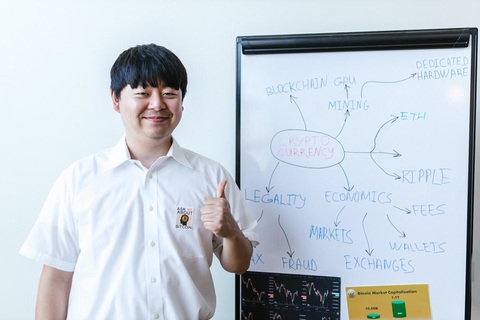 BLOCKCHAIN
GPU
DEDICATED
HARDWARE
MINING
ETH
CRYPTO
CURRENCY
RIPPLE
LEGALITY
ECONOMICS
FEES
MARKETS
WALLETS
AX
FRAUD
EXCHANGES
ASK
ABOUT
BITCOIN
Bitcoin Market Capitalization